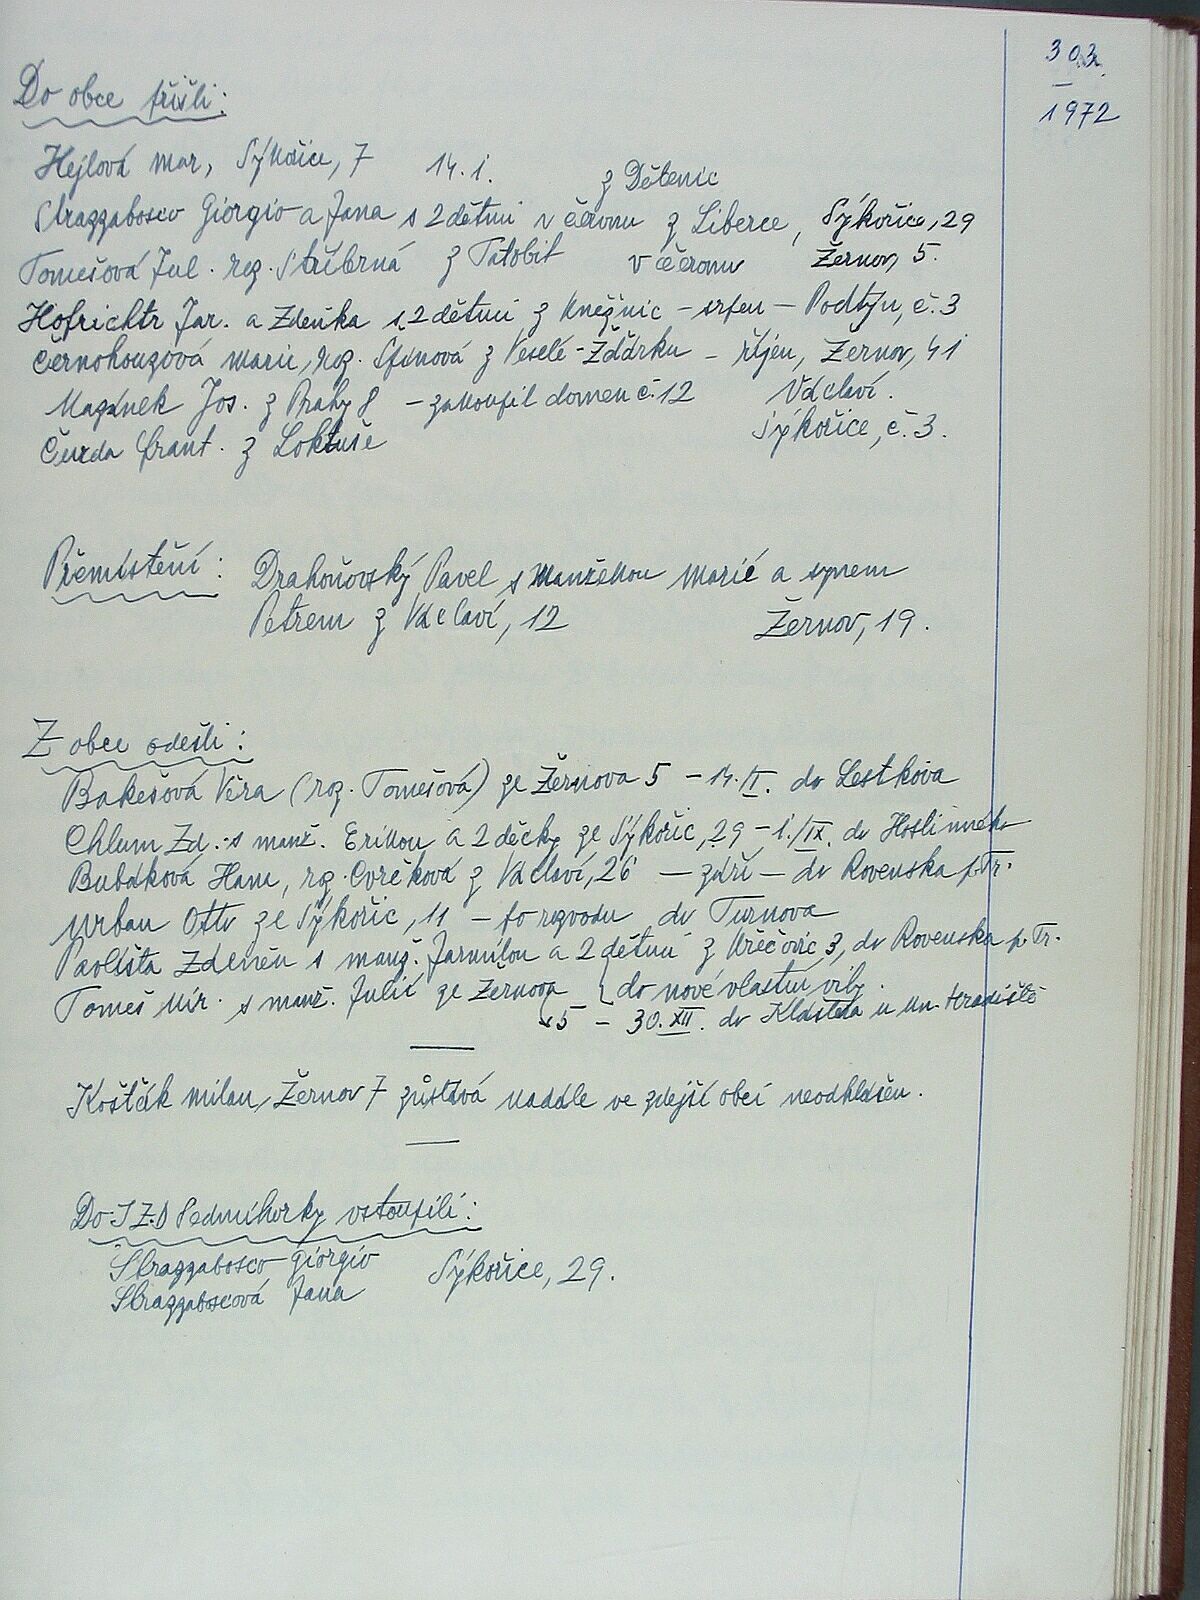 303.
1972
Do obce přišli:
Hejlová Mar, Sýkořice, 7 14.1. z Dětenic
Sbrazzabosco Giorgio a Jana s 2 dětmi v červnu z Liberce, Sýkořice, 29
Tomešová Jul. roz. Stříbrná z Tatobit v červnu Žernov, 5.
Hofrichtr Jar. a Zdeňka s 2 dětmi z Kněžnic - srpen - Podtýn, č. 3
Černohouzová Marie, roz. z Veselé-Žďárku - říjen, Žernov, 41
Mazánek Jos. z Prahy 8 - zakoupil domek č. 12 Václaví.
Čurda Frant. z Loktuše Sýkořice, č. 3.
Přemístění: Drahoňovský Pavel s manželkou Marií a synem
Petrem z Václaví, 12 Žernov, 19.
Z obce odešli:
Bakešová Věra (roz. Tomešová) ze Žernova 5 - 14. do Lestkova
Chlum Zd. s manž. Erikou a 2 děcky ze Sýkořic, 29 - 1./IX. do Hostinného
Bubáková Hana, roz. Cvrčková z Václaví, 26 - září - do Rovenska p. Tr.
Urban Otto ze Sýkořic, 11 - po rozvodu do Turnova
Pavlišta Zdeněk s manž. Jarmilou a 2 dětmi z Křečovic, 3, do Rovenska p. Tr.
do nové vlastní vily.
Tomeš Mir. s manž. Julií ze Žernova
5 - 30. XII. do Kláštera u Mn. Hradiště
Košťák Milan, Žernov 7 zůstává nadále ve zdejší obci neodhlášen.
Do JZD Sedmihorky vstoupili:
Sbrazzabosco Giorgio Sýkořice, 29.
Sbrazzaboscová Jana